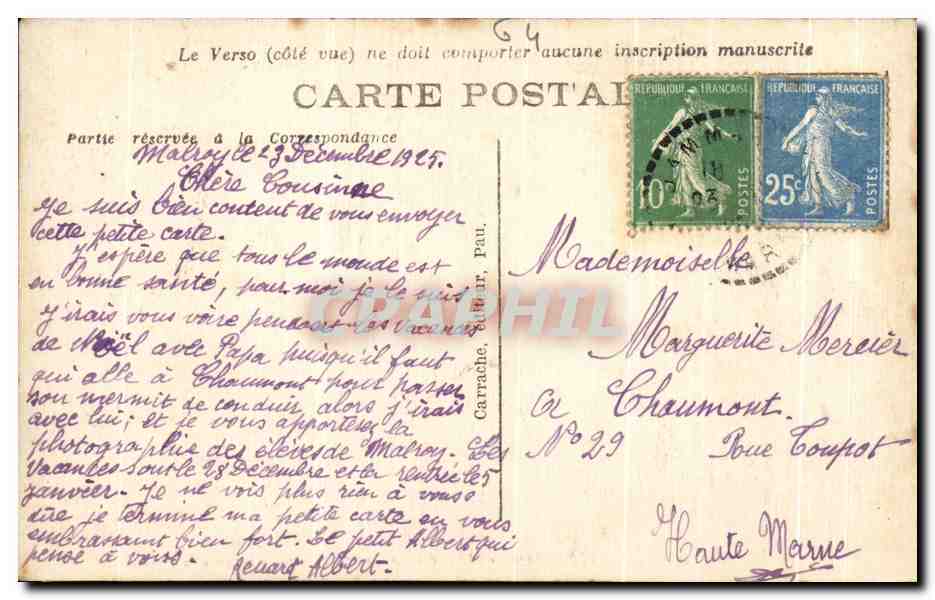 64
Le Verso (côté vue) ne doit comporter aucune inscription manuscrite
CARTE POSTAL
Partie réservée à la Correspondance
RÉPUBLIQUE FRANÇAISE
10
POSTES
RÉPUBLIQUE FRANÇAISE
25c
POSTES
Malroy le 23 Décembre 1925.
Chère Cousine
Je suis bien content de vous envoyer
cette petite carte.
J'espère que tous le monde est
en bonne santé, pour moi je le suis
J'irais vous voire pendant les vacances
de Noël avec Papa puisqu'il faut
qui alle à Chaumont pour passer
son mermit de conduir, alors j'irais
avec lui; et je vous apporterai la
photographie des élèves de Malroy. Les
vacances sont le 28 Décembre et la rentrée le 5
janvier. Je ne vois plus rien à vous
dire je termine ma petite carte en vous
embrassant bien fort. Le petit Albert qui
pense à vous.
Renard Albert.
Carrache, éditeur, Pau.
CPAPHIL
Mademoiselle
Marguerite Mercier
à Chaumont.
No 29 Rue Toupot
Haute Marne